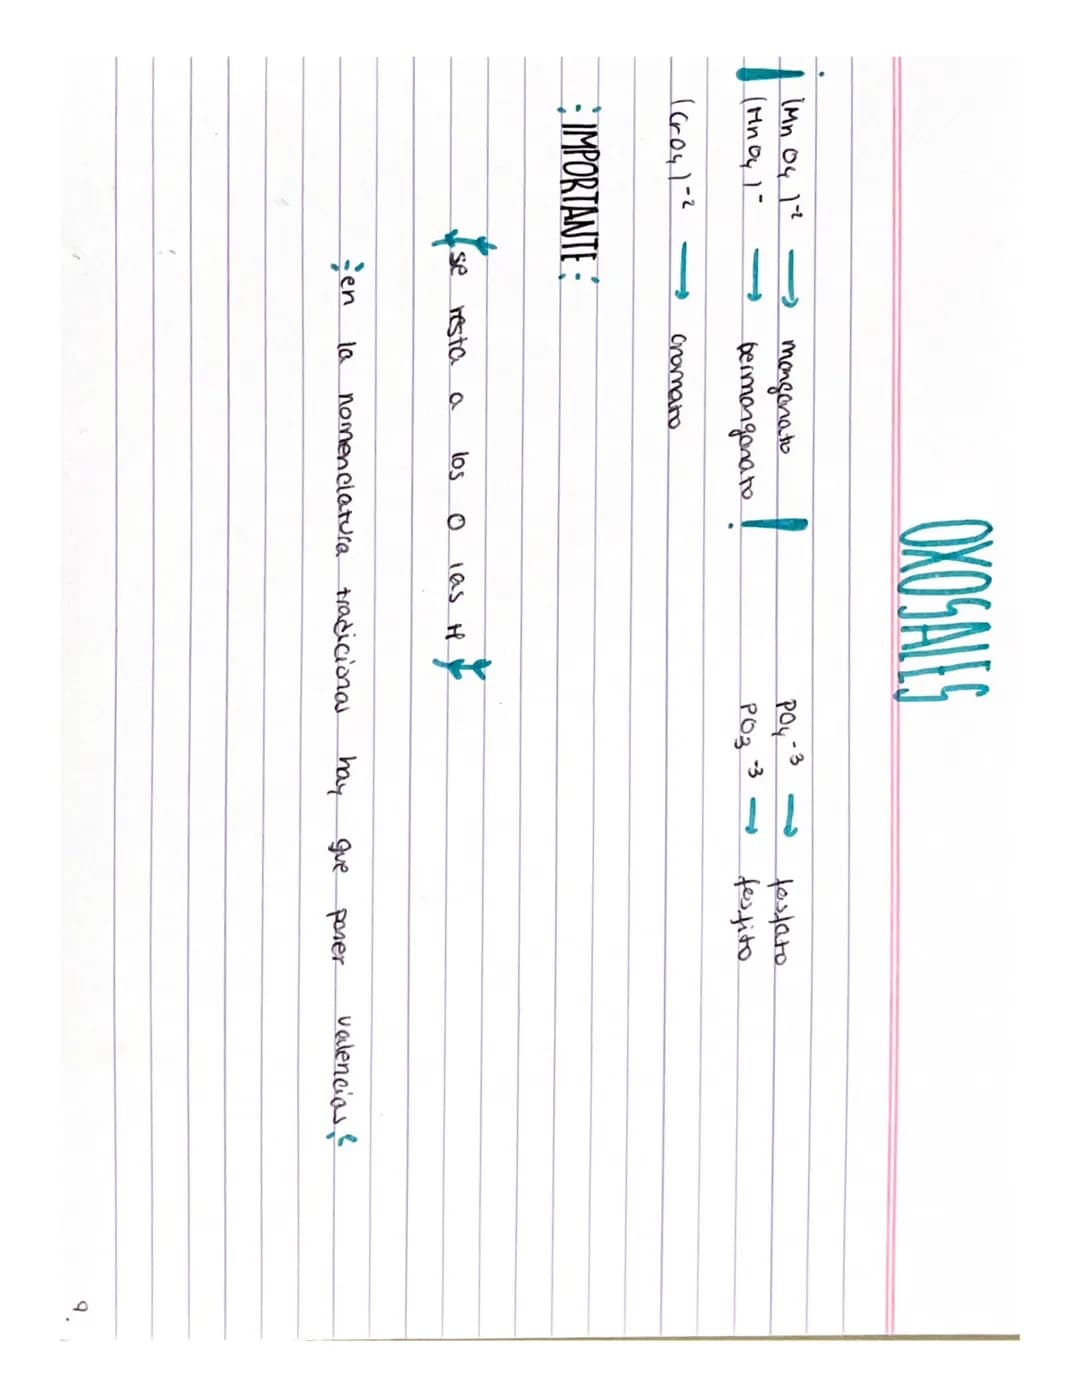 OXOSALES
(MnO4)-2 → manganato
(MnO4)- → permanganato
PO4-3 → fosfato
PO3-3 → fosfito
(CrO4)-2 → cromato
IMPORTANTE:
se resta a los O las H
en la nomenclatura tradicional hay que poner valencias
9.